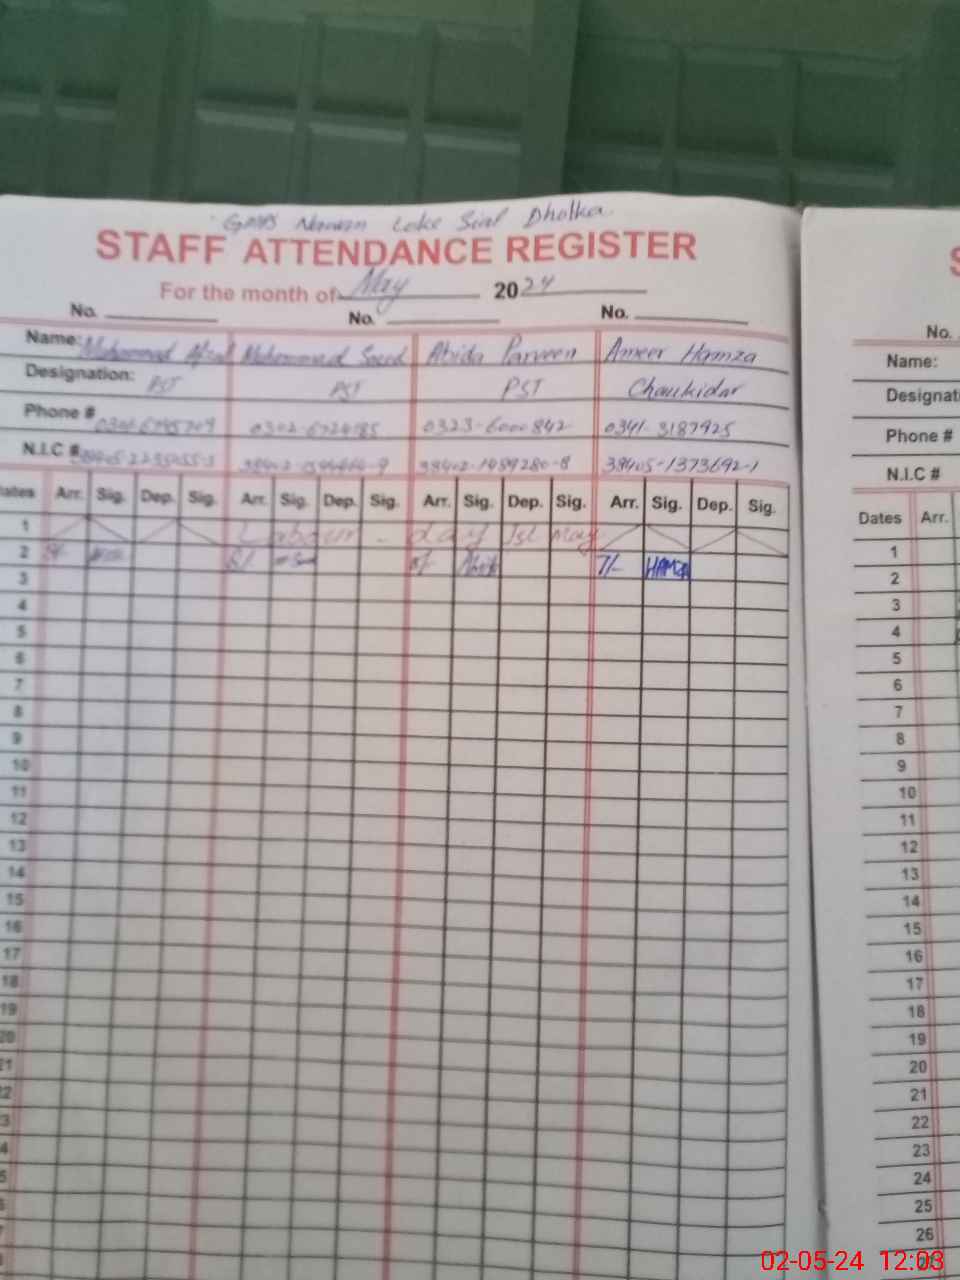 Loke Sial Dholka
STAFF ATTENDANCE REGISTER
For the month of May 2024
No. No. No.
Name: Muhammad Afzal Muhammad Saeed Abida Parveen Ameer Hamza
Designation: PST PST PST Chaukidar
Phone # 0323-6000842 0341-3187925
N.I.C # 38402-1489280-8 38405-1373692-1
Dates Arr. Sig. Dep. Sig. Arr. Sig. Dep. Sig. Arr. Sig. Dep. Sig. Arr. Sig. Dep. Sig.
1 Labour - day 1st May
2 8/- 8/- 8/- 7/- HAMZA
3
4
5
6
7
8
9
10
11
12
13
14
15
16
17
18
19
20
21
22
23
24
25
No.
Name:
Designati
Phone #
N.I.C #
Dates Arr.
1
2
3
4
5
6
7
8
9
10
11
12
13
14
15
16
17
18
19
20
21
22
23
24
25
26
02-05-24 12:03